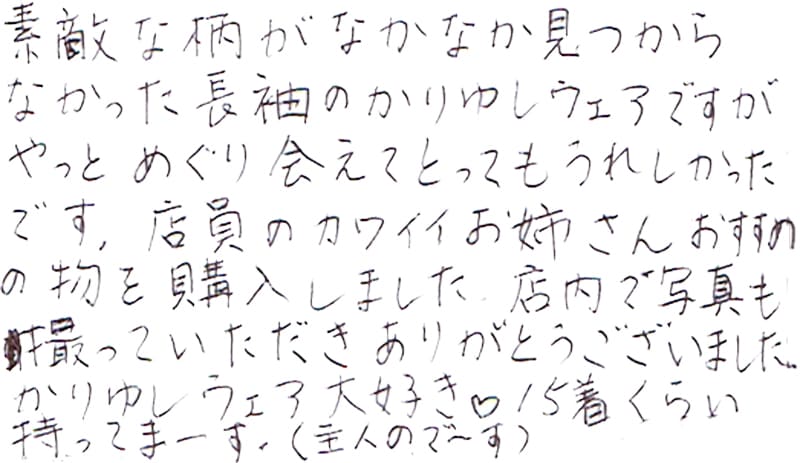 素敵な柄がなかなか見つから
なかった長袖のかりゆしウェアですが
やっとめぐり会えてとってもうれしかった
です。店員のカワイイお姉さんおすすめ
の物を購入しました。店内で写真も
撮っていただきありがとうございました。
かりゆしウェア大好き♡15着くらい
持ってまーす。(主人ので〜す)